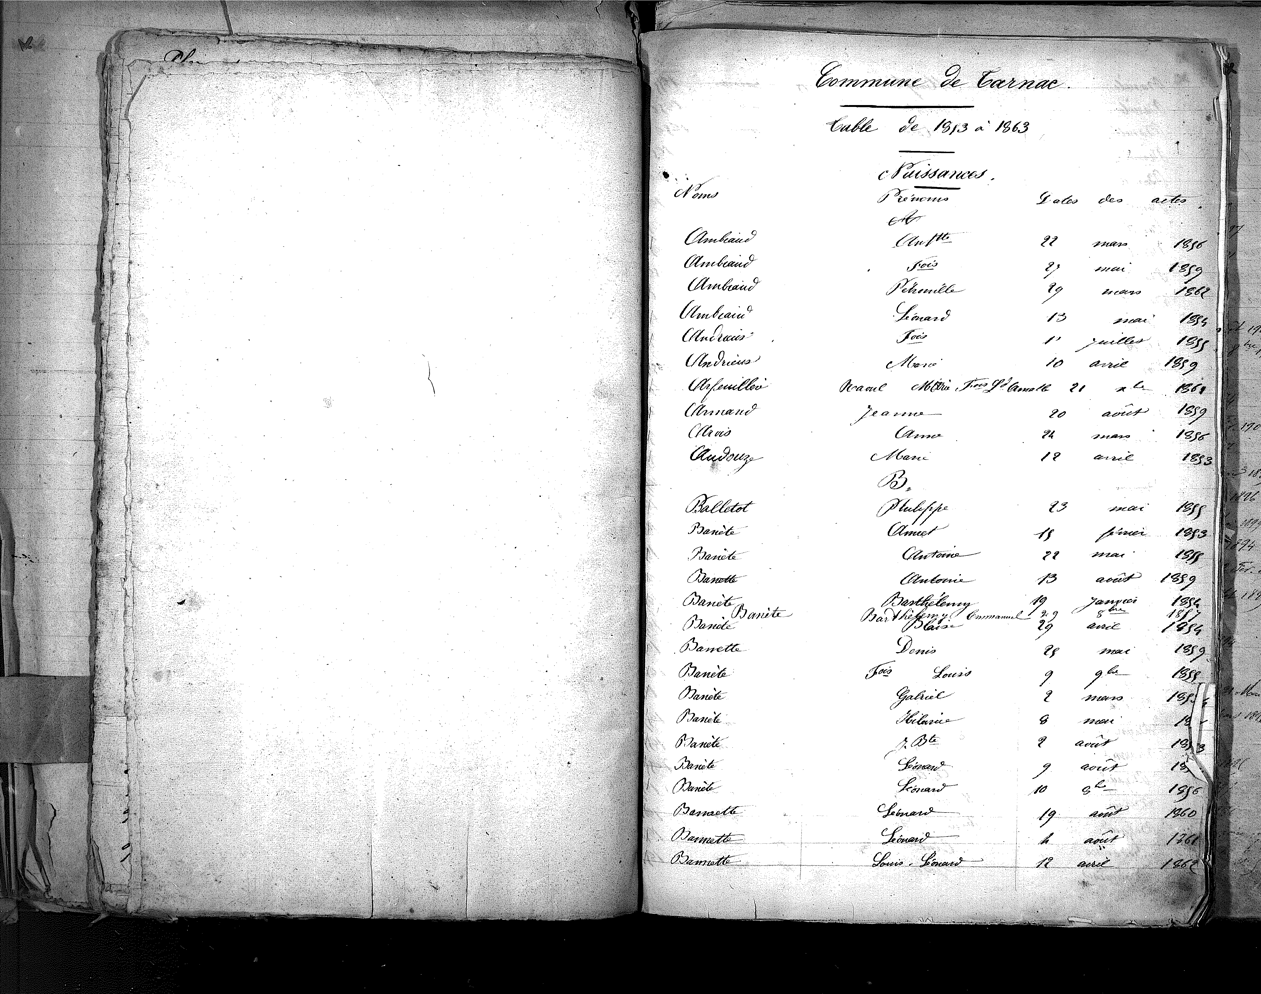 Commune de Tarnac.
Table de 1853 à 1863
Naissances.
Noms Prénoms Dates des actes
A
Ambeaud 22 mars 1856
Ambeaud Fois 27 mai 1859
Ambeaud Pétronille 29 mars 1862
Ambeaud Léonard 13 mai 1854
Andraus Fois 1er juillet 1855
Andrieus Marie 10 avril 1859
Arfeuillère Raoul 21 xbre 1861
Armand Jeanne 20 août 1859
Arvis Anne 24 mars 1856
Audouze Marie 12 avril 1853
B.
Balletot Philippe 23 mai 1855
Banète Amet 15 février 1853
Banète Antoine 22 mai 1855
Banette Antoine 13 août 1859
Banète Barthélemy 19 janvier 1854
Banète Barthélemy Emmanuel 29 8bre 1857
Banète Blaise 29 avril 1854
Banette Denis 25 mai 1859
Banète Fois Louis 9 9bre 1855
Banète Gabriel 2 mars 185
Banète Hilarie 8 mai 18
Banète J. Bte 2 août 1853
Banète Léonard 9 août 18
Banète Léonard 10 8bre 1856
Bannette Léonard 19 août 1860
Bannette Léonard 4 août 1861
Bannette Louis Léonard 12 avril 1862